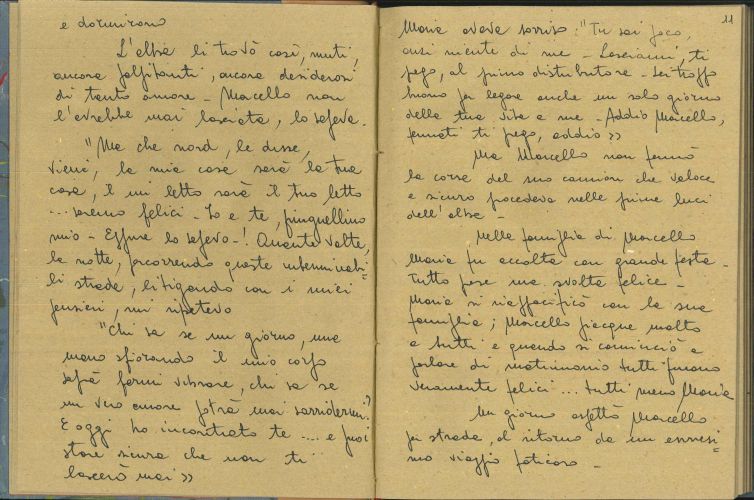 e dormirono
L'alba li trovò così, muti,
ancora palpitanti, ancora desiderosi
di tanto amore - Marcello non
l'avrebbe mai lasciata, lo sapeva.
"Ma che nord, le disse,
vieni, la mia casa sarà la tua
casa, il mi letto sarà il tuo letto
... saremo felici - Io e te, pinguellino
mio - Eppure lo sapevo -! Quante volte,
la notte, percorrendo queste interminabi=
li strade, litigando con i miei
pensieri, mi ripetevo
"Chi sa se un giorno, una
mano sfiorando il mio corpo
saprà farmi vibrare, chi sa se
un vero amore potrà mai sorridermi?
E oggi ho incontrato te .... e puoi
stare sicura che non ti
lascerò mai »
11
Maria aveva sorriso: "Tu sai poco,
anzi niente di me - Lasciami, ti
pego, al primo distributore - Sei troppo
buono per legare anche un solo giorno
della tua vita a me - Addio Marcello,
fermati ti pego, addio »
Ma Marcello non fermò
la corsa del suo camion che veloce
e sicuro procedeva nelle prime luci
dell'alba -
Nella famiglia di Marcello
Maria fu accolta con grande festa -
Tutto prese una svolta felice -
Maria si riappacificò con la sua
famiglia; Marcello piacque molto
a tutti e quando si cominciò a
parlare di matrimonio tutti furono
veramente felici ... tutti meno Maria
Un giorno aspettò Marcello
per strada, al ritorno da un ennesi=
mo viaggio faticoso -